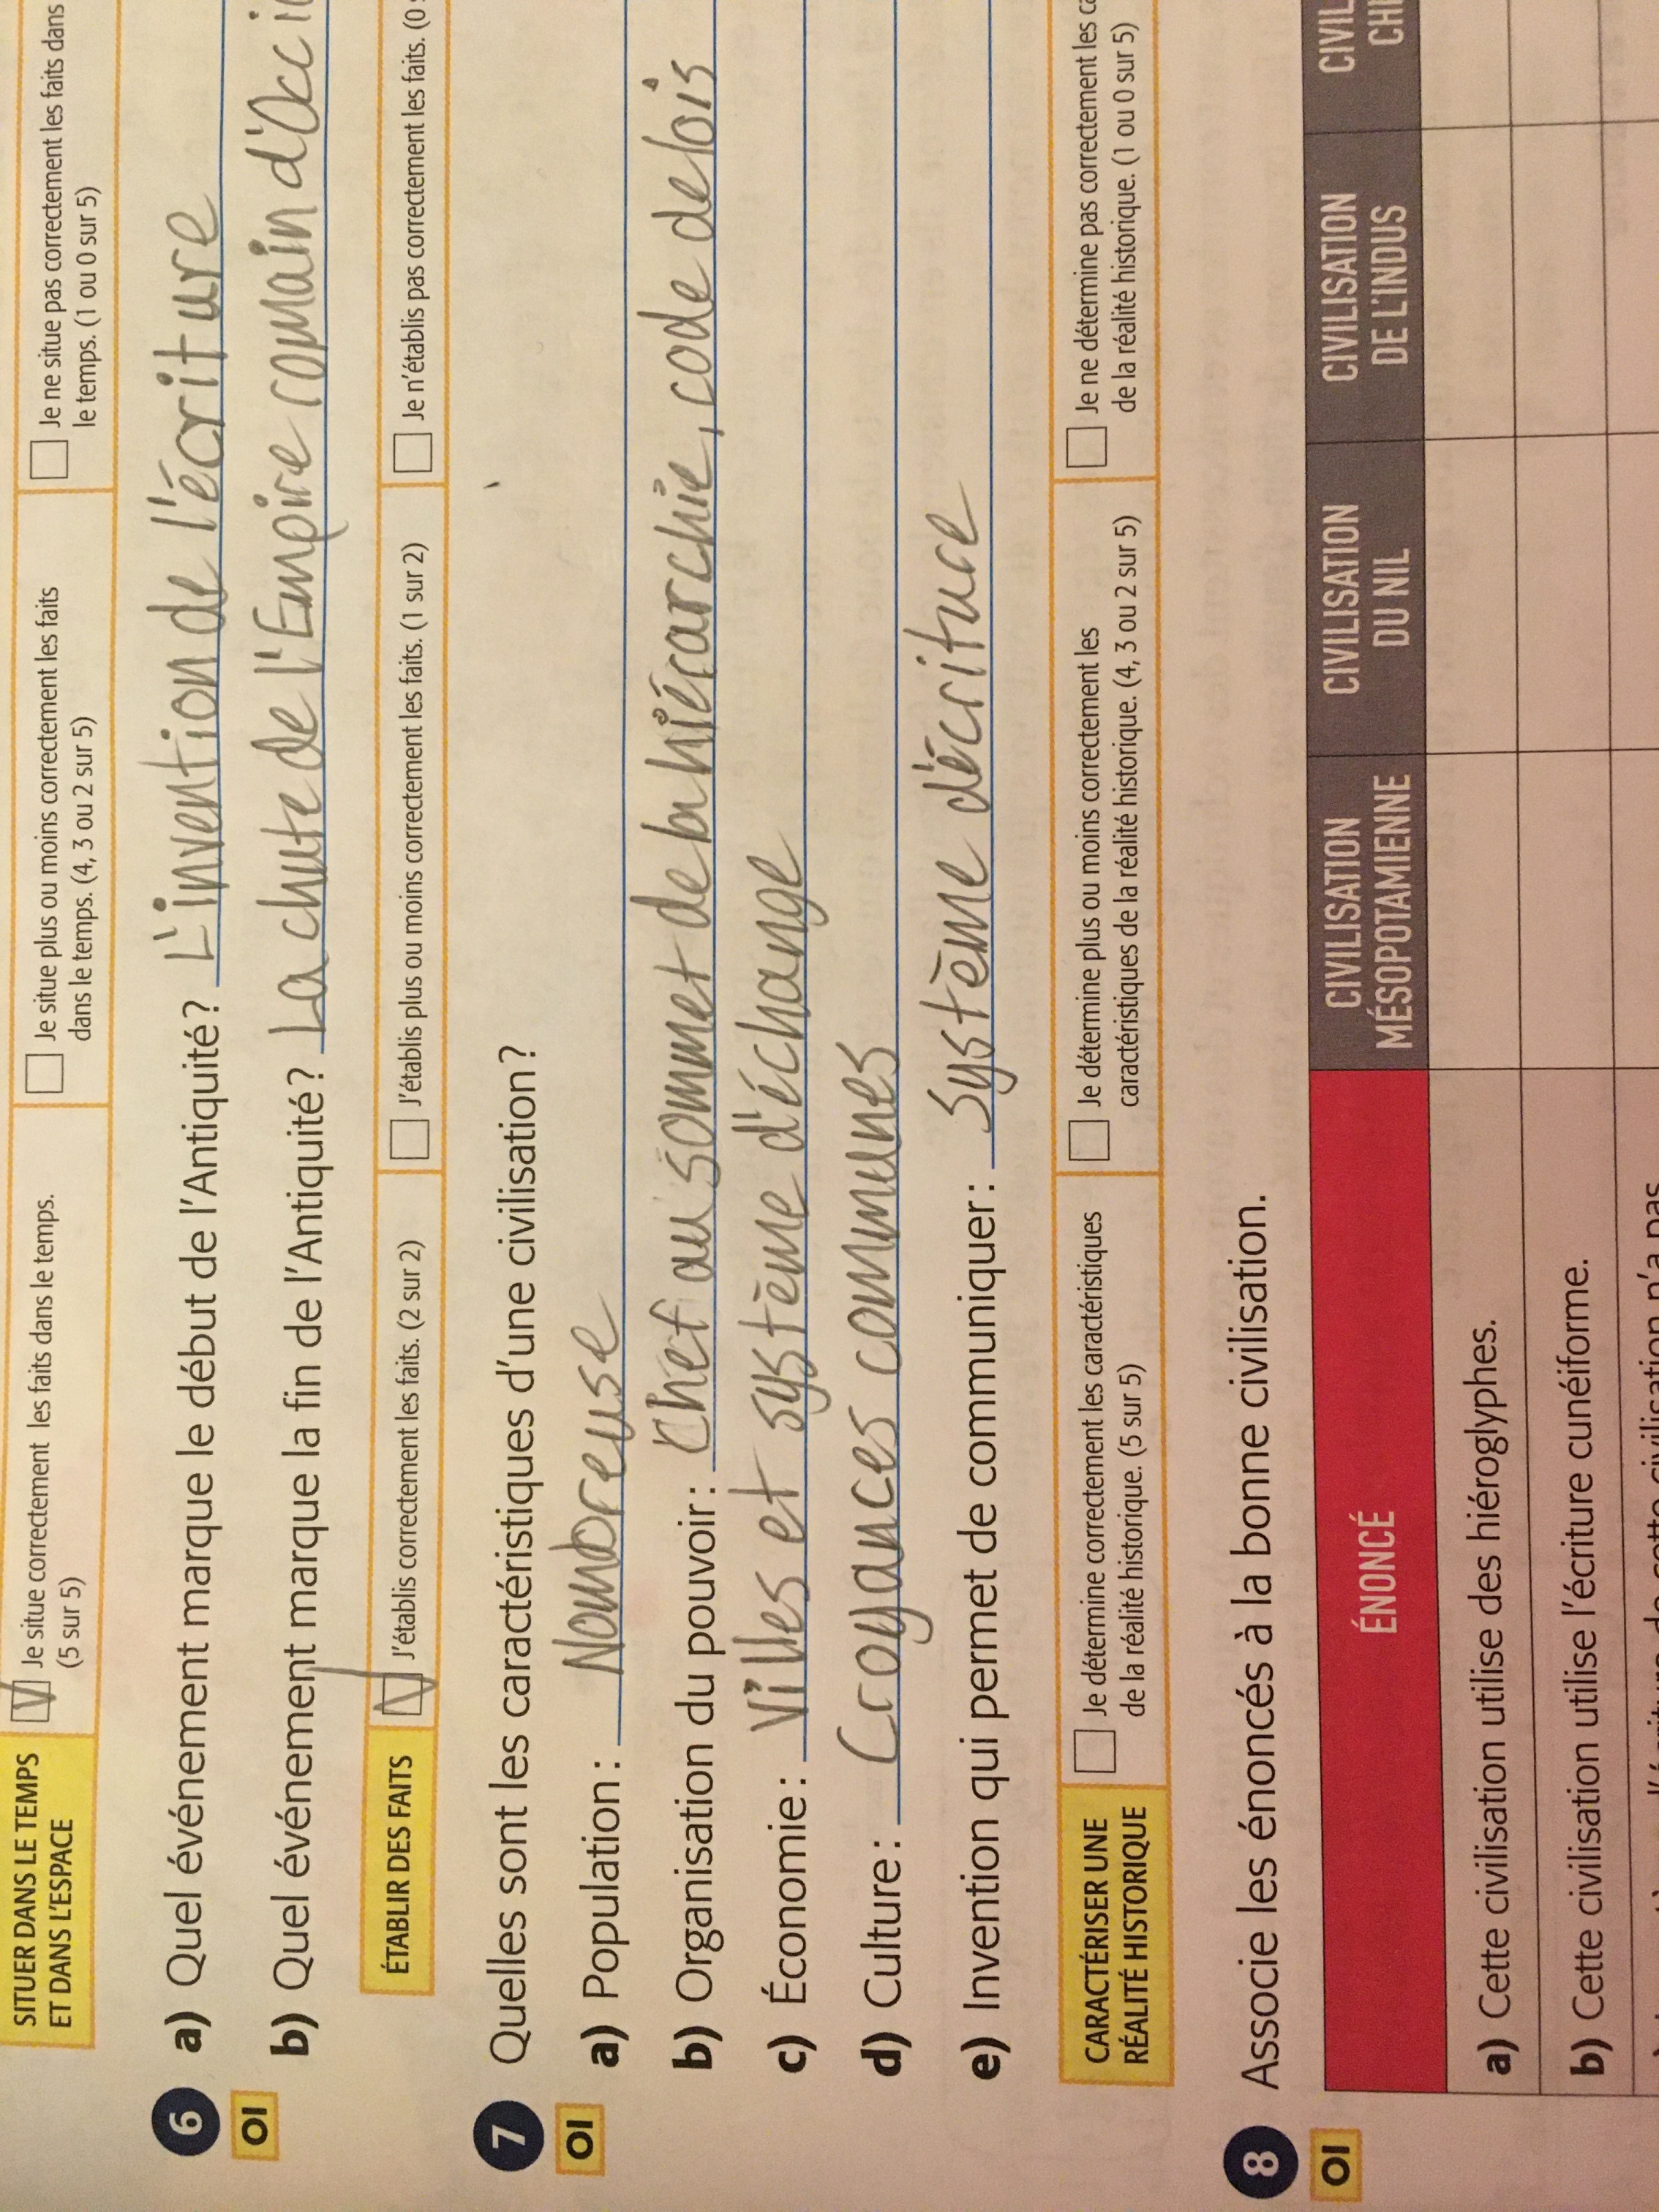 SITUER DANS LE TEMPS
ET DANS L'ESPACE
Je situe correctement les faits dans le temps.
(5 sur 5)
Je situe plus ou moins correctement les faits
dans le temps. (4, 3 ou 2 sur 5)
Je ne situe pas correctement les faits dans
le temps. (1 ou 0 sur 5)
6 a) Quel événement marque le début de l'Antiquité? L'invention de l'écriture
OI b) Quel événement marque la fin de l'Antiquité? La chute de l'Empire romain d'Occi
ÉTABLIR DES FAITS
J'établis correctement les faits. (2 sur 2)
J'établis plus ou moins correctement les faits. (1 sur 2)
Je n'établis pas correctement les faits. (0
7 Quelles sont les caractéristiques d'une civilisation?
OI a) Population: Nombreuse
b) Organisation du pouvoir: Chef au sommet de la hiérarchie, code de lois
c) Économie: Villes et système d'échange
d) Culture: Croyances communes
e) Invention qui permet de communiquer: système d'écriture
CARACTÉRISER UNE
RÉALITÉ HISTORIQUE
Je détermine correctement les caractéristiques
de la réalité historique. (5 sur 5)
Je détermine plus ou moins correctement les
caractéristiques de la réalité historique. (4, 3 ou 2 sur 5)
Je ne détermine pas correctement les ca
de la réalité historique. (1 ou 0 sur 5)
8 Associe les énoncés à la bonne civilisation.
OI
ÉNONCÉ
CIVILISATION
MÉSOPOTAMIENNE
CIVILISATION
DU NIL
CIVILISATION
DE L'INDUS
CIVIL
CHI
a) Cette civilisation utilise des hiéroglyphes.
b) Cette civilisation utilise l'écriture cunéiforme.
l'écriture de cette civilisation n'a pas